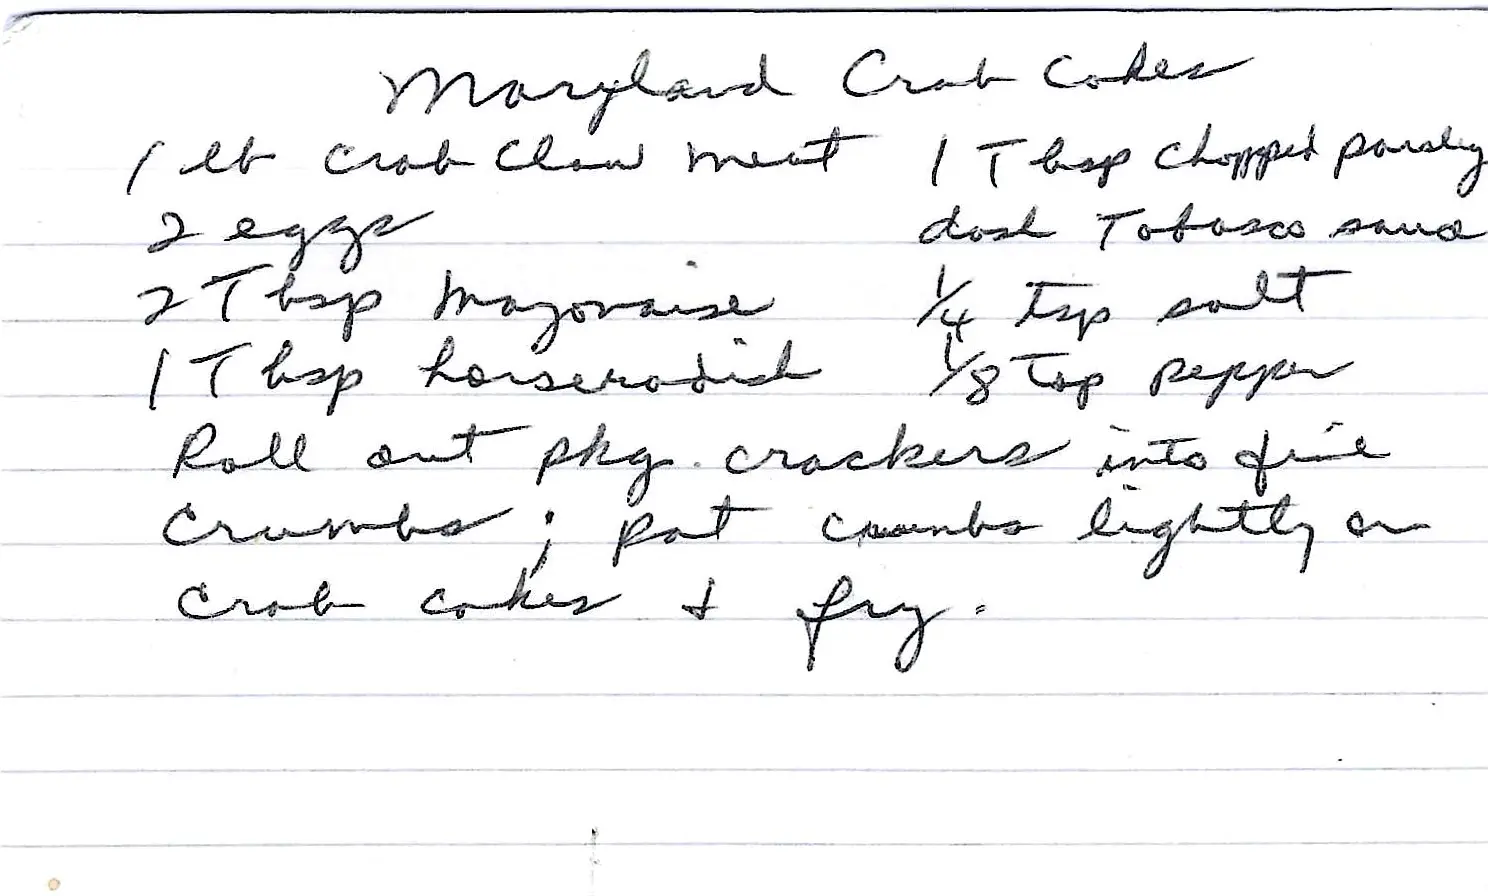 Maryland Crab Cakes
1 lb crab claw meat 1 Tbsp chopped parsley
2 eggs dash Tobasco sauce
2 Tbsp Mayonaise 1/4 tsp salt
1 Tbsp horseradish 1/8 Tsp pepper
Roll out pkg. crackers into fine
crumbs; pat crumbs lightly on
crab cakes & fry.